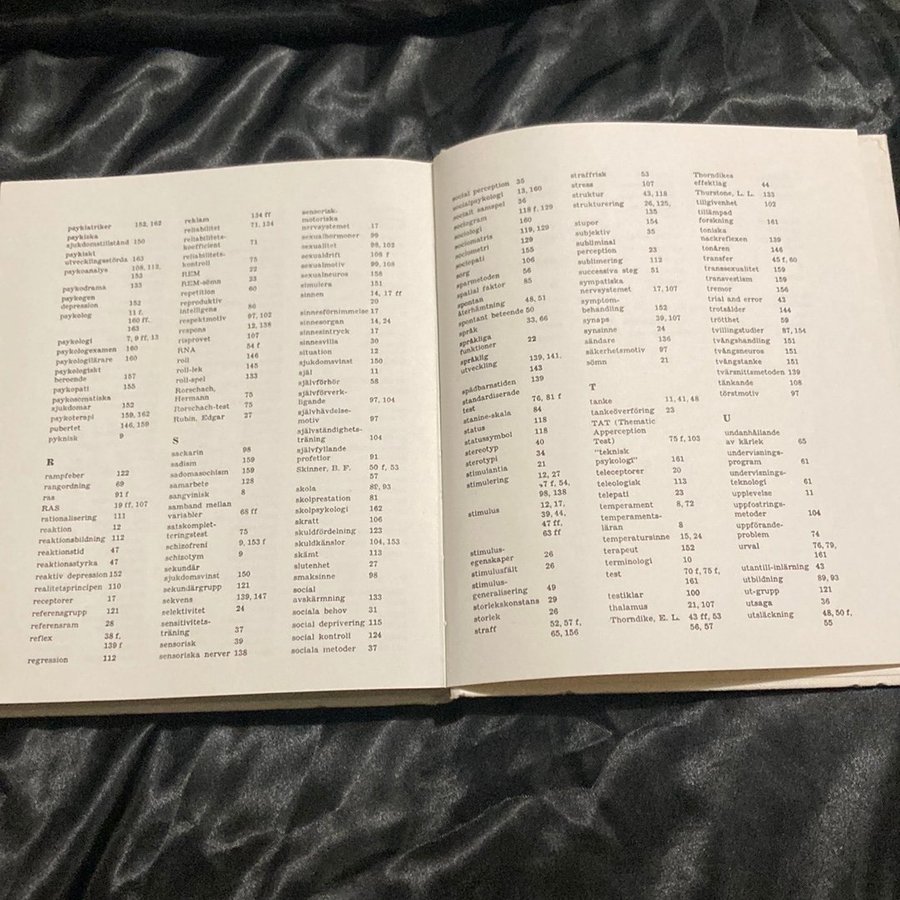 psykiatriker 152, 162
psykiska
sjukdomstillstånd 150
psykiskt
utvecklingsstörda 163
psykoanalys 108, 112,
153
psykodrama 133
psykogen
depression 152
psykolog 11 f,
160 ff,
163
psykologi 7, 9 ff, 13
psykologexamen 160
psykologilärare 160
psykologiskt
beroende 157
psykopati 155
psykosomatiska
sjukdomar 152
psykoterapi 159, 162
pubertet 146, 159
pyknisk 9
R
rampfeber 122
rangordning 69
ras 91 f
RAS 19 ff, 107
rationalisering 111
reaktion 12
reaktionsbildning 112
reaktionstid 47
reaktionsstyrka 47
reaktiv depression 152
realitetsprincipen 110
receptorer 17
referensgrupp 121
referensram 28
reflex 38 f,
139 f
regression 112
reklam 134 ff
reliabilitet 71, 134
reliabilitets-
koefficient 71
reliabilitets-
kontroll 75
REM 22
REM-sömn 23
repetition 60
reproduktiv
intelligens 80
respektmotiv 97, 102
respons 12, 138
risprovet 107
RNA 54 f
roll 146
roll-lek 145
roll-spel 133
Rorschach,
Hermann 75
Rorschach-test 75
Rubin, Edgar 27
S
sackarin 98
sadism 159
sadomasochism 159
samarbete 128
sangvinisk 8
samband mellan
variabler 68 ff
satskomplet-
teringstest 75
schizofreni 9, 153 f
schizotym 9
sekundär
sjukdomsvinst 150
sekundärgrupp 121
sekvens 139, 147
selektivitet 24
sensitivitets-
träning 37
sensorisk 39
sensoriska nerver 138
sensorisk-
motoriska
nervsystemet 17
sexualhormoner 99
sexualitet 98, 102
sexualdrift 108 f
sexualmotiv 99, 108
sexualneuros 158
simulera 151
sinnen 14, 17 ff
20
sinnesförnimmelse 17
sinnesorgan 14, 24
sinnesintryck 17
sinnesvilla 30
situation 12
sjukdomsvinst 150
själ 11
självförhör 58
självförverk-
ligande 97, 104
självhävdelse-
motiv 97
självständighets-
träning 104
självfyllande
profetior 91
Skinner, B. F. 50 f, 53
57
skola 89, 93
skolprestation 81
skolpsykologi 162
skratt 106
skuldfördelning 123
skuldkänslor 104, 153
skämt 113
slutenhet 27
smaksinne 98
social
avskärmning 133
sociala behov 31
social deprivering 115
social kontroll 124
sociala metoder 37
social perception 35
socialpsykologi 13, 160
socialt samspel 36
sociogram 118 f, 129
sociologi 160
sociomatris 119, 129
sociometri 129
sociopati 155
sorg 106
sparmetoden 56
spatial faktor 85
spontan
återhämtning 48, 51
spontant beteende 50
språk 33, 66
språkliga
funktioner 22
språklig
utveckling 139, 141,
143
spädbarnstiden 139
standardiserade
test 76, 81 f
stanine-skala 84
status 118
statussymbol 118
stereotyp 40
sterotypi 34
stimulantia 21
stimulering 12, 27
47 f, 54,
98, 138
stimulus 12, 17,
39, 44,
47 ff,
63 ff
stimulus-
egenskaper 26
stimulusfält 26
stimulus-
generalisering 49
storlekskonstans 29
storlek 26
straff 52, 57 f,
65, 156
straffrisk 53
stress 107
struktur 43, 118
strukturering 26, 125,
135
stupor 154
subjektiv 35
subliminal
perception 23
sublimering 112
successiva steg 51
sympatiska
nervsystemet 17, 107
symptom-
behandling 152
synaps 39, 107
synsinne 24
sändare 136
säkerhetsmotiv 97
sömn 21
T
tanke 11, 41, 48
tankeöverföring 23
TAT (Thematic
Apperception
Test) 75 f, 103
"teknisk
psykologi" 161
teleceptorer 20
teleologisk 113
telepati 23
temperament 8, 72
temperaments-
läran 8
temperatursinne 15, 24
terapeut 152
terminologi 10
test 70 f, 75 f,
161
testiklar 100
thalamus 21, 107
Thorndike, E. L. 43 ff, 53
56, 57
Thorndikes
effektlag 44
Thurstone, L. L. 133
tillgivenhet 102
tillämpad
forskning 161
toniska
nackreflexen 139
tonåren 146
transfer 45 f, 60
transsexualitet 159
transvestism 159
tremor 156
trial and error 43
trotsålder 144
trötthet 59
tvillingstudier 87, 154
tvångshandling 151
tvångsneuros 151
tvångstanke 151
tvärsnittsmetoden 139
tänkande 108
törstmotiv 97
U
undanhållande
av kärlek 65
undervisnings-
program 61
undervisnings-
teknologi 61
upplevelse 11
uppfostrings-
metoder 104
uppförande-
problem 74
urval 76, 79,
161
utantill-inlärning 43
utbildning 89, 93
ut-grupp 121
utsaga 36
utsläckning 48, 50 f,
55